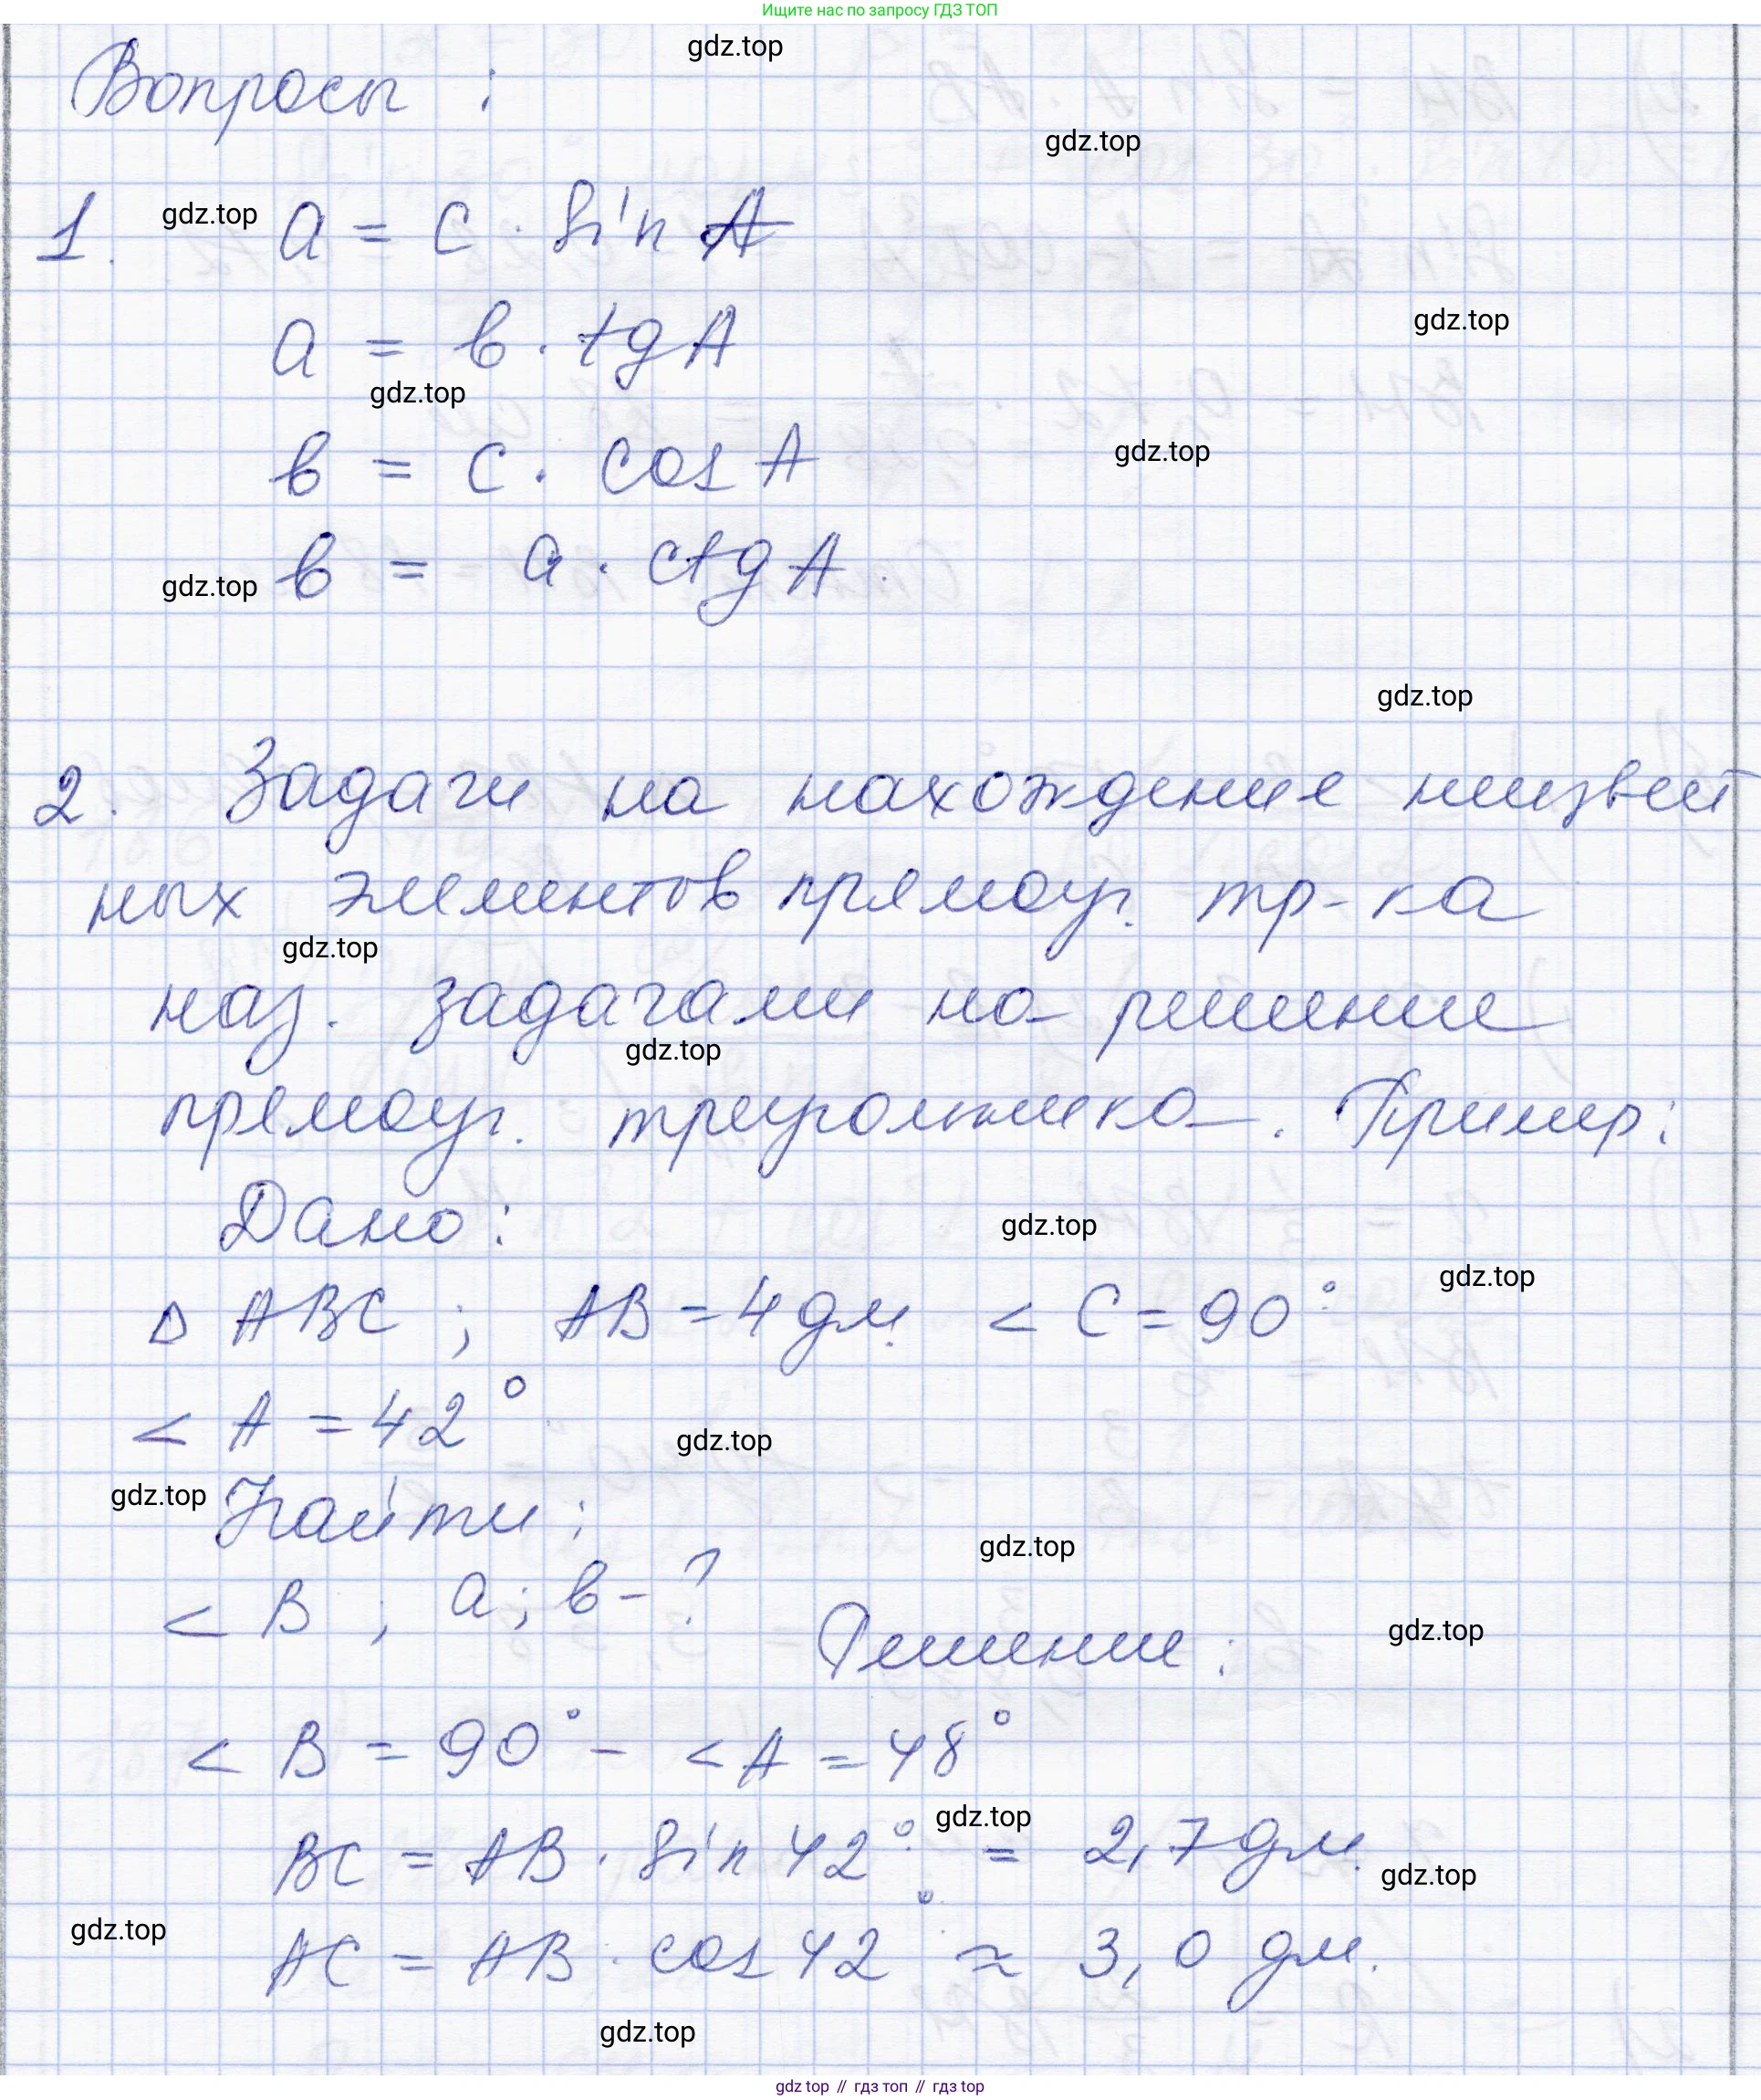 Ищите нас по запросу ГДЗ ТОП
gdz.top
Вопросы :
gdz.top
1. gdz.top a = c · sin A
gdz.top
a = в · tg A
gdz.top
в = c · cos A
gdz.top
gdz.top в = a · ctg A.
gdz.top
2. Задачи на нахождение неизвест
ных элементов прямоуг. тр-ка
gdz.top
наз. задачами на решение
gdz.top
прямоуг. треугольника. Пример:
Дано:
gdz.top
gdz.top
Δ ABC ; AB = 4 дм. < C = 90°
< A = 42°
gdz.top
gdz.top Найти :
gdz.top
< B ; a ; в - ?
Решение : gdz.top
< B = 90° - < A = 48°
gdz.top
BC = AB · sin 42° = 2,7 дм.
gdz.top
gdz.top
AC = AB · cos 42° ≈ 3,0 дм.
gdz.top
gdz top // гдз топ // гдз top